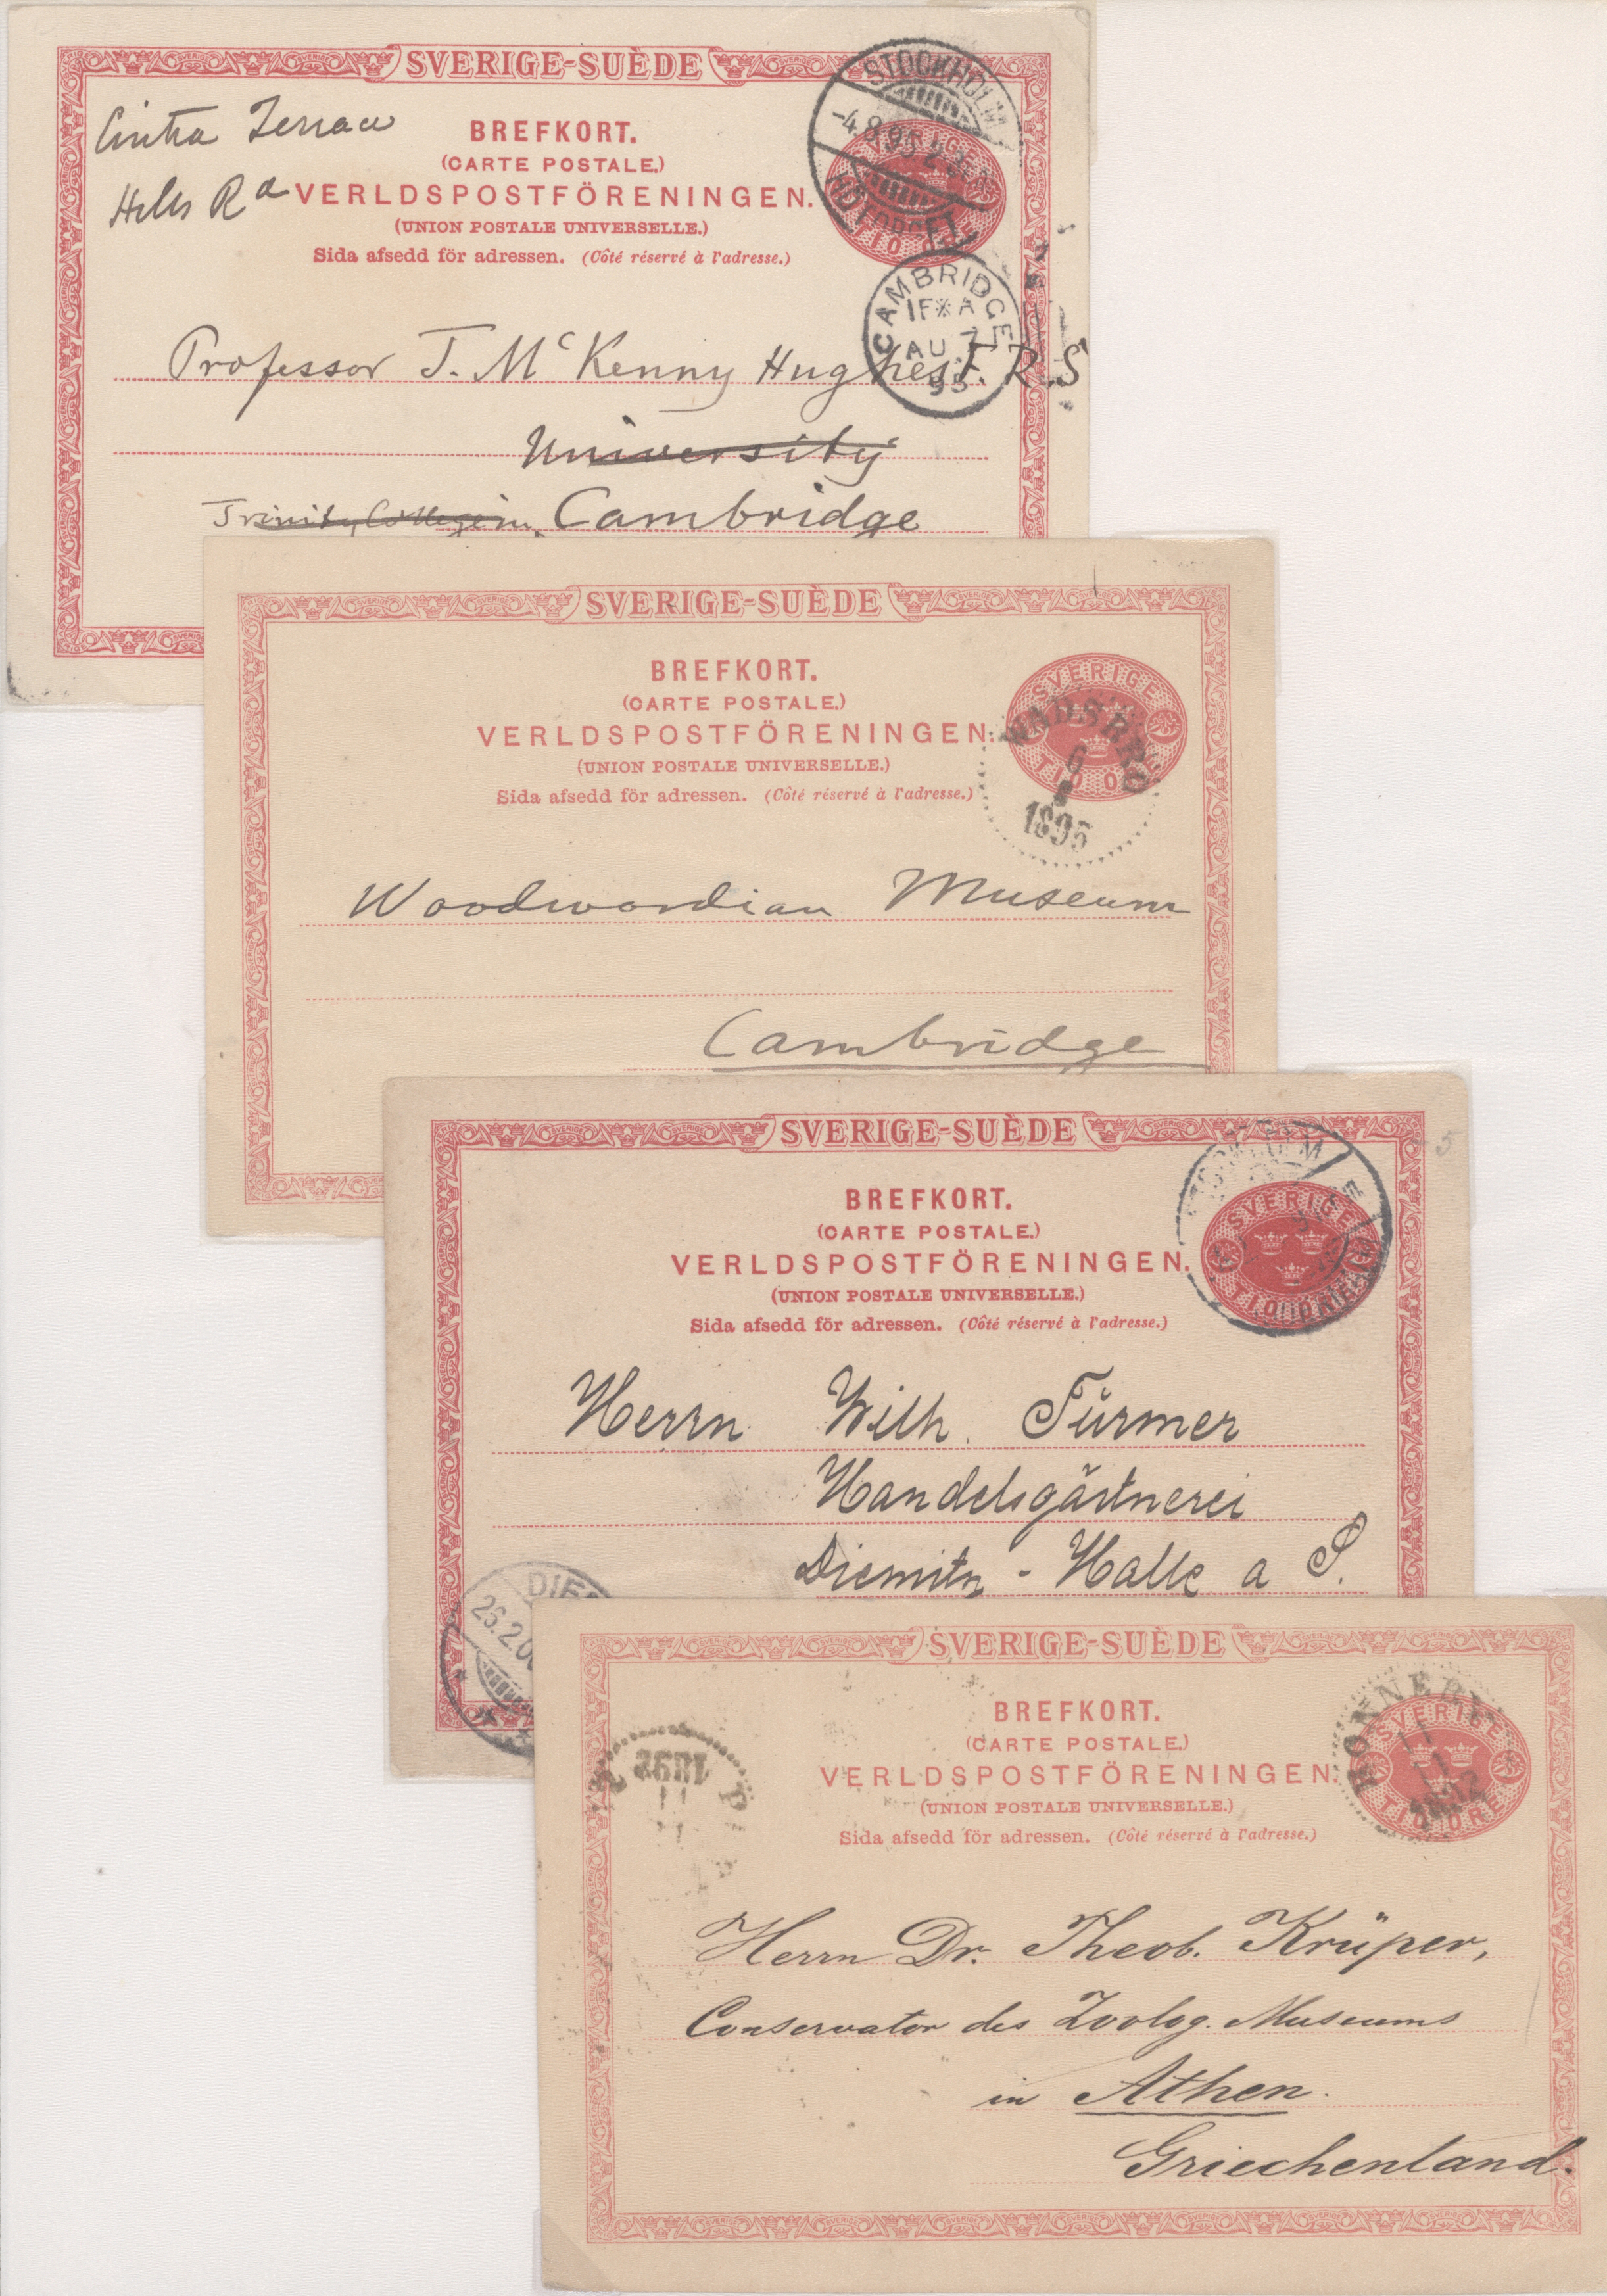 SVERIGE-SUÈDE
Cintra Terrace
Hills Rd
BREFKORT.
(CARTE POSTALE.)
VERLDSPOSTFÖRENINGEN.
(UNION POSTALE UNIVERSELLE.)
Sida afsedd för adressen. (Côté réservé à l'adresse.)
STOCKHOLM
TIO ÖRE
CAMBRIDGE
AU 7
95
Professor T. McKenny Hughes F.R.S
University
Trinity College Cambridge
SVERIGE-SUÈDE
BREFKORT.
(CARTE POSTALE.)
VERLDSPOSTFÖRENINGEN.
(UNION POSTALE UNIVERSELLE.)
Sida afsedd för adressen. (Côté réservé à l'adresse.)
SVERIGE
TIO ÖRE
6
8
1895
Woodwardian Museum
Cambridge
SVERIGE-SUÈDE
BREFKORT.
(CARTE POSTALE.)
VERLDSPOSTFÖRENINGEN.
(UNION POSTALE UNIVERSELLE.)
Sida afsedd för adressen. (Côté réservé à l'adresse.)
STOCKHOLM
SVERIGE
5
Herrn Wilh. Türmer
Handelsgärtnerei
Diemitz - Halle a S.
26.2.0
SVERIGE-SUÈDE
BREFKORT.
(CARTE POSTALE.)
VERLDSPOSTFÖRENINGEN.
(UNION POSTALE UNIVERSELLE.)
Sida afsedd för adressen. (Côté réservé à l'adresse.)
RONNEBY
SVERIGE
TIO ÖRE
1892
Herrn Dr. Theob. Krüper,
Conservator des Zoolog. Museums
in Athen.
Griechenland.